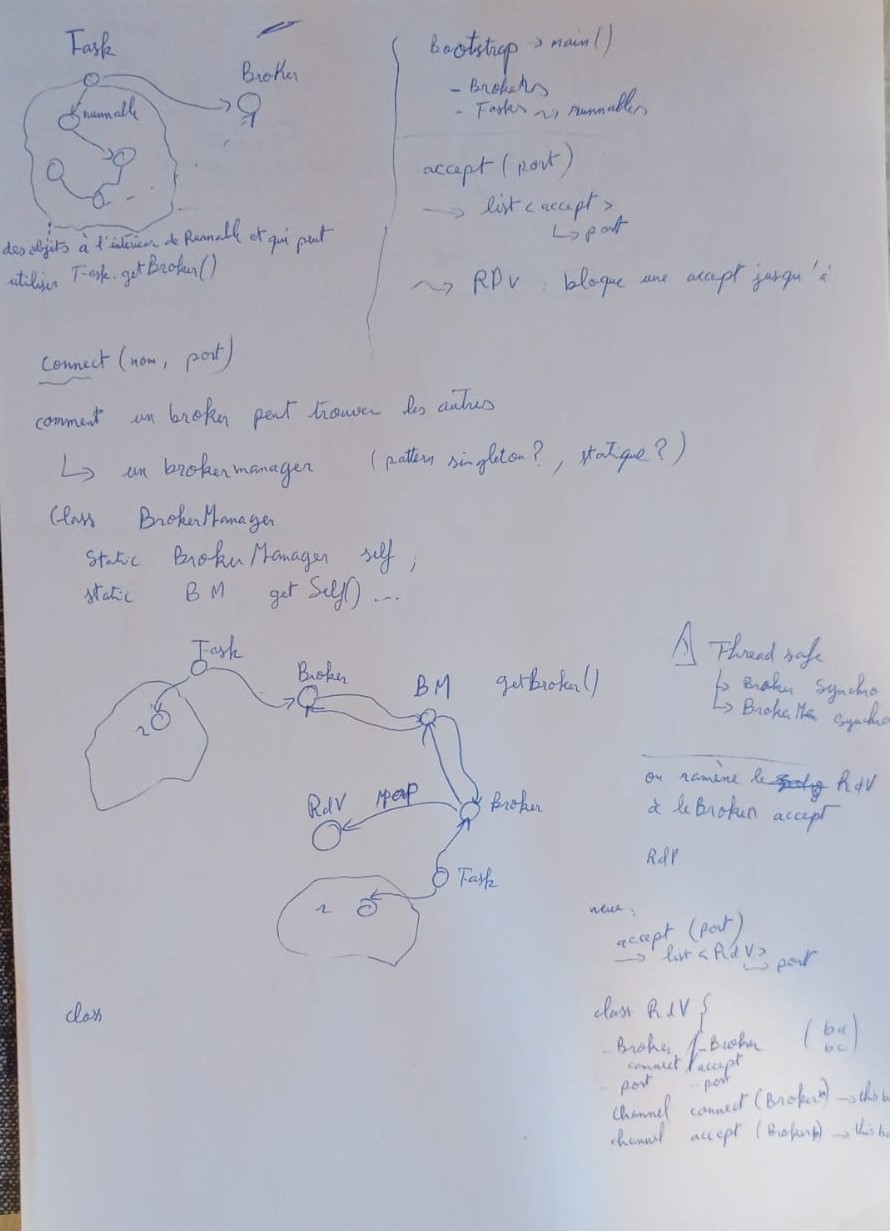 Task
Broker
runnable
des objets à l'intérieur de Runnable et qui peut
utiliser Task.getBroker()
Bootstrap → main()
- Brokers
- Tasks ~> runnables
accept (port)
→ list < accept >
↳ port
~> RDV : bloque une accept jusqu'à
Connect (nom, port)
comment un broker peut trouver les autres
↳ un brokermanager (pattern singleton?, statique?)
Class BrokerManager
Static BrokerManager self ;
static BM getSelf() ...
Task
Broker
BM
getBroker()
r
RdV
Broker
Task
r
class
⚠ Thread safe
↳ Broker Synchro
↳ BrokerMan synchro
on ramène le RdV
à le Broker accept
RdP
accept (port)
→ list < RdV >
↳ port
class RdV {
- Broker / - Broker (ba
connect / accept bc)
- port - port
channel connect (Broker) → this b
channel accept (Broker) → this b